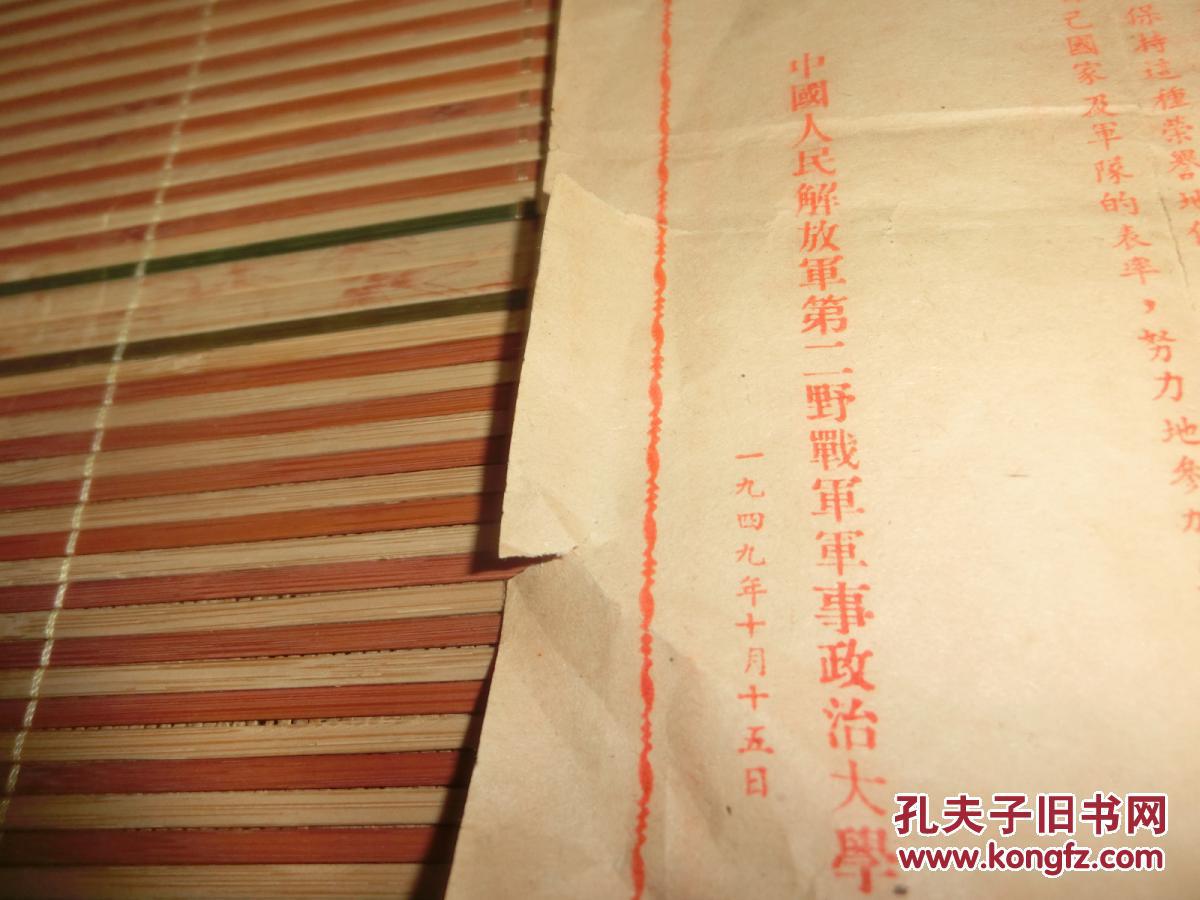 保持這種荣譽地
己國家及軍隊的表率，努力地参加
中國人民解放軍第二野戰軍軍事政治大學
一九四九年十月十五日
孔夫子旧书网
www.kongfz.com